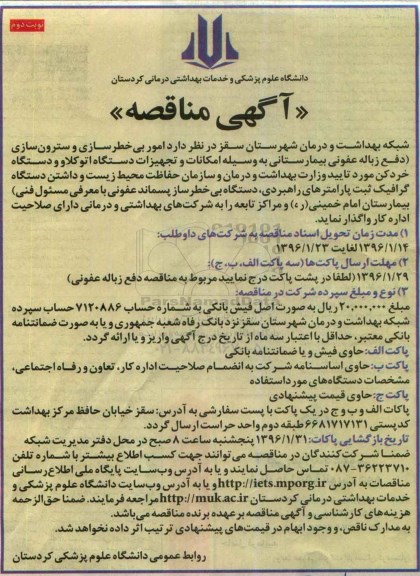 نوبت دوم
دانشگاه علوم پزشکی و خدمات بهداشتی درمانی کردستان
«آگهی مناقصه»
شبکه بهداشت و درمان شهرستان سقز در نظر دارد امور بی‌خطرسازی و سترون‌سازی
(دفع زباله عفونی بیمارستانی به وسیله امکانات و تجهیزات دستگاه اتوکلاو و دستگاه
خردکن مورد تایید وزارت بهداشت و درمان و سازمان حفاظت محیط زیست و داشتن دستگاه
گرافیک ثبت پارامترهای راهبردی، دستگاه بی‌خطرساز پسماند عفونی با معرفی مسئول فنی)
بیمارستان امام خمینی(ره) و مراکز تابعه را به شرکت‌های بهداشتی و درمانی دارای صلاحیت
اداره کار واگذار نماید.
۱) مدت زمان تحویل اسناد مناقصه به شرکت‌های داوطلب:
۱۳۹۶/۱/۱۴ لغایت ۱۳۹۶/۱/۲۳
۲) مهلت ارسال پاکت‌ها (سه پاکت الف، ب، ج):
۱۳۹۶/۱/۲۹ (لطفا در پشت پاکت درج نمایید مربوط به مناقصه دفع زباله عفونی)
۳) نوع و مبلغ سپرده شرکت در مناقصه:
مبلغ ۲۰,۰۰۰,۰۰۰ ریال به صورت اصل فیش بانکی به شماره حساب ۷۱۲۰۸۸۶ حساب سپرده
شبکه بهداشت و درمان شهرستان سقز نزد بانک رفاه شعبه جمهوری و یا به صورت ضمانتنامه
بانکی معتبر، حداقل با اعتبار سه ماه از تاریخ درج آگهی واریز و یا ارائه گردد.
پاکت الف: حاوی فیش و یا ضمانتنامه بانکی
پاکت ب: حاوی اساسنامه شرکت به انضمام صلاحیت اداره کار، تعاون و رفاه اجتماعی،
مشخصات دستگاه‌های مورد استفاده
پاکت ج: حاوی قیمت پیشنهادی
پاکات الف و ب و ج در یک پاکت با پست سفارشی به آدرس: سقز خیابان حافظ مرکز بهداشت
کدپستی ۶۶۸۱۷۱۷۱۳۱ طبقه دوم واحد حراست ارسال گردد.
تاریخ بازگشایی پاکات: ۱۳۹۶/۱/۳۱ پنجشنبه ساعت ۸ صبح در محل دفتر مدیریت شبکه
ضمنا شرکت‌کنندگان در مناقصه می‌توانند جهت کسب اطلاع بیشتر با شماره تلفن
۰۸۷-۳۶۲۲۳۷۱۰ تماس حاصل نمایند و یا به آدرس وب‌سایت پایگاه ملی اطلاع‌رسانی
مناقصات به آدرس http://iets.mporg.ir و یا به آدرس وب‌سایت دانشگاه علوم پزشکی و
خدمات بهداشتی درمانی کردستان http://muk.ac.ir مراجعه فرمایند. ضمنا حق‌الزحمه
هزینه‌های کارشناسی و آگهی مناقصه بر عهده برنده مناقصه می‌باشد.
به مدارک ناقص، و وجود ابهام در قیمت‌های پیشنهادی ترتیب اثر داده نخواهد شد.
روابط عمومی دانشگاه علوم پزشکی کردستان